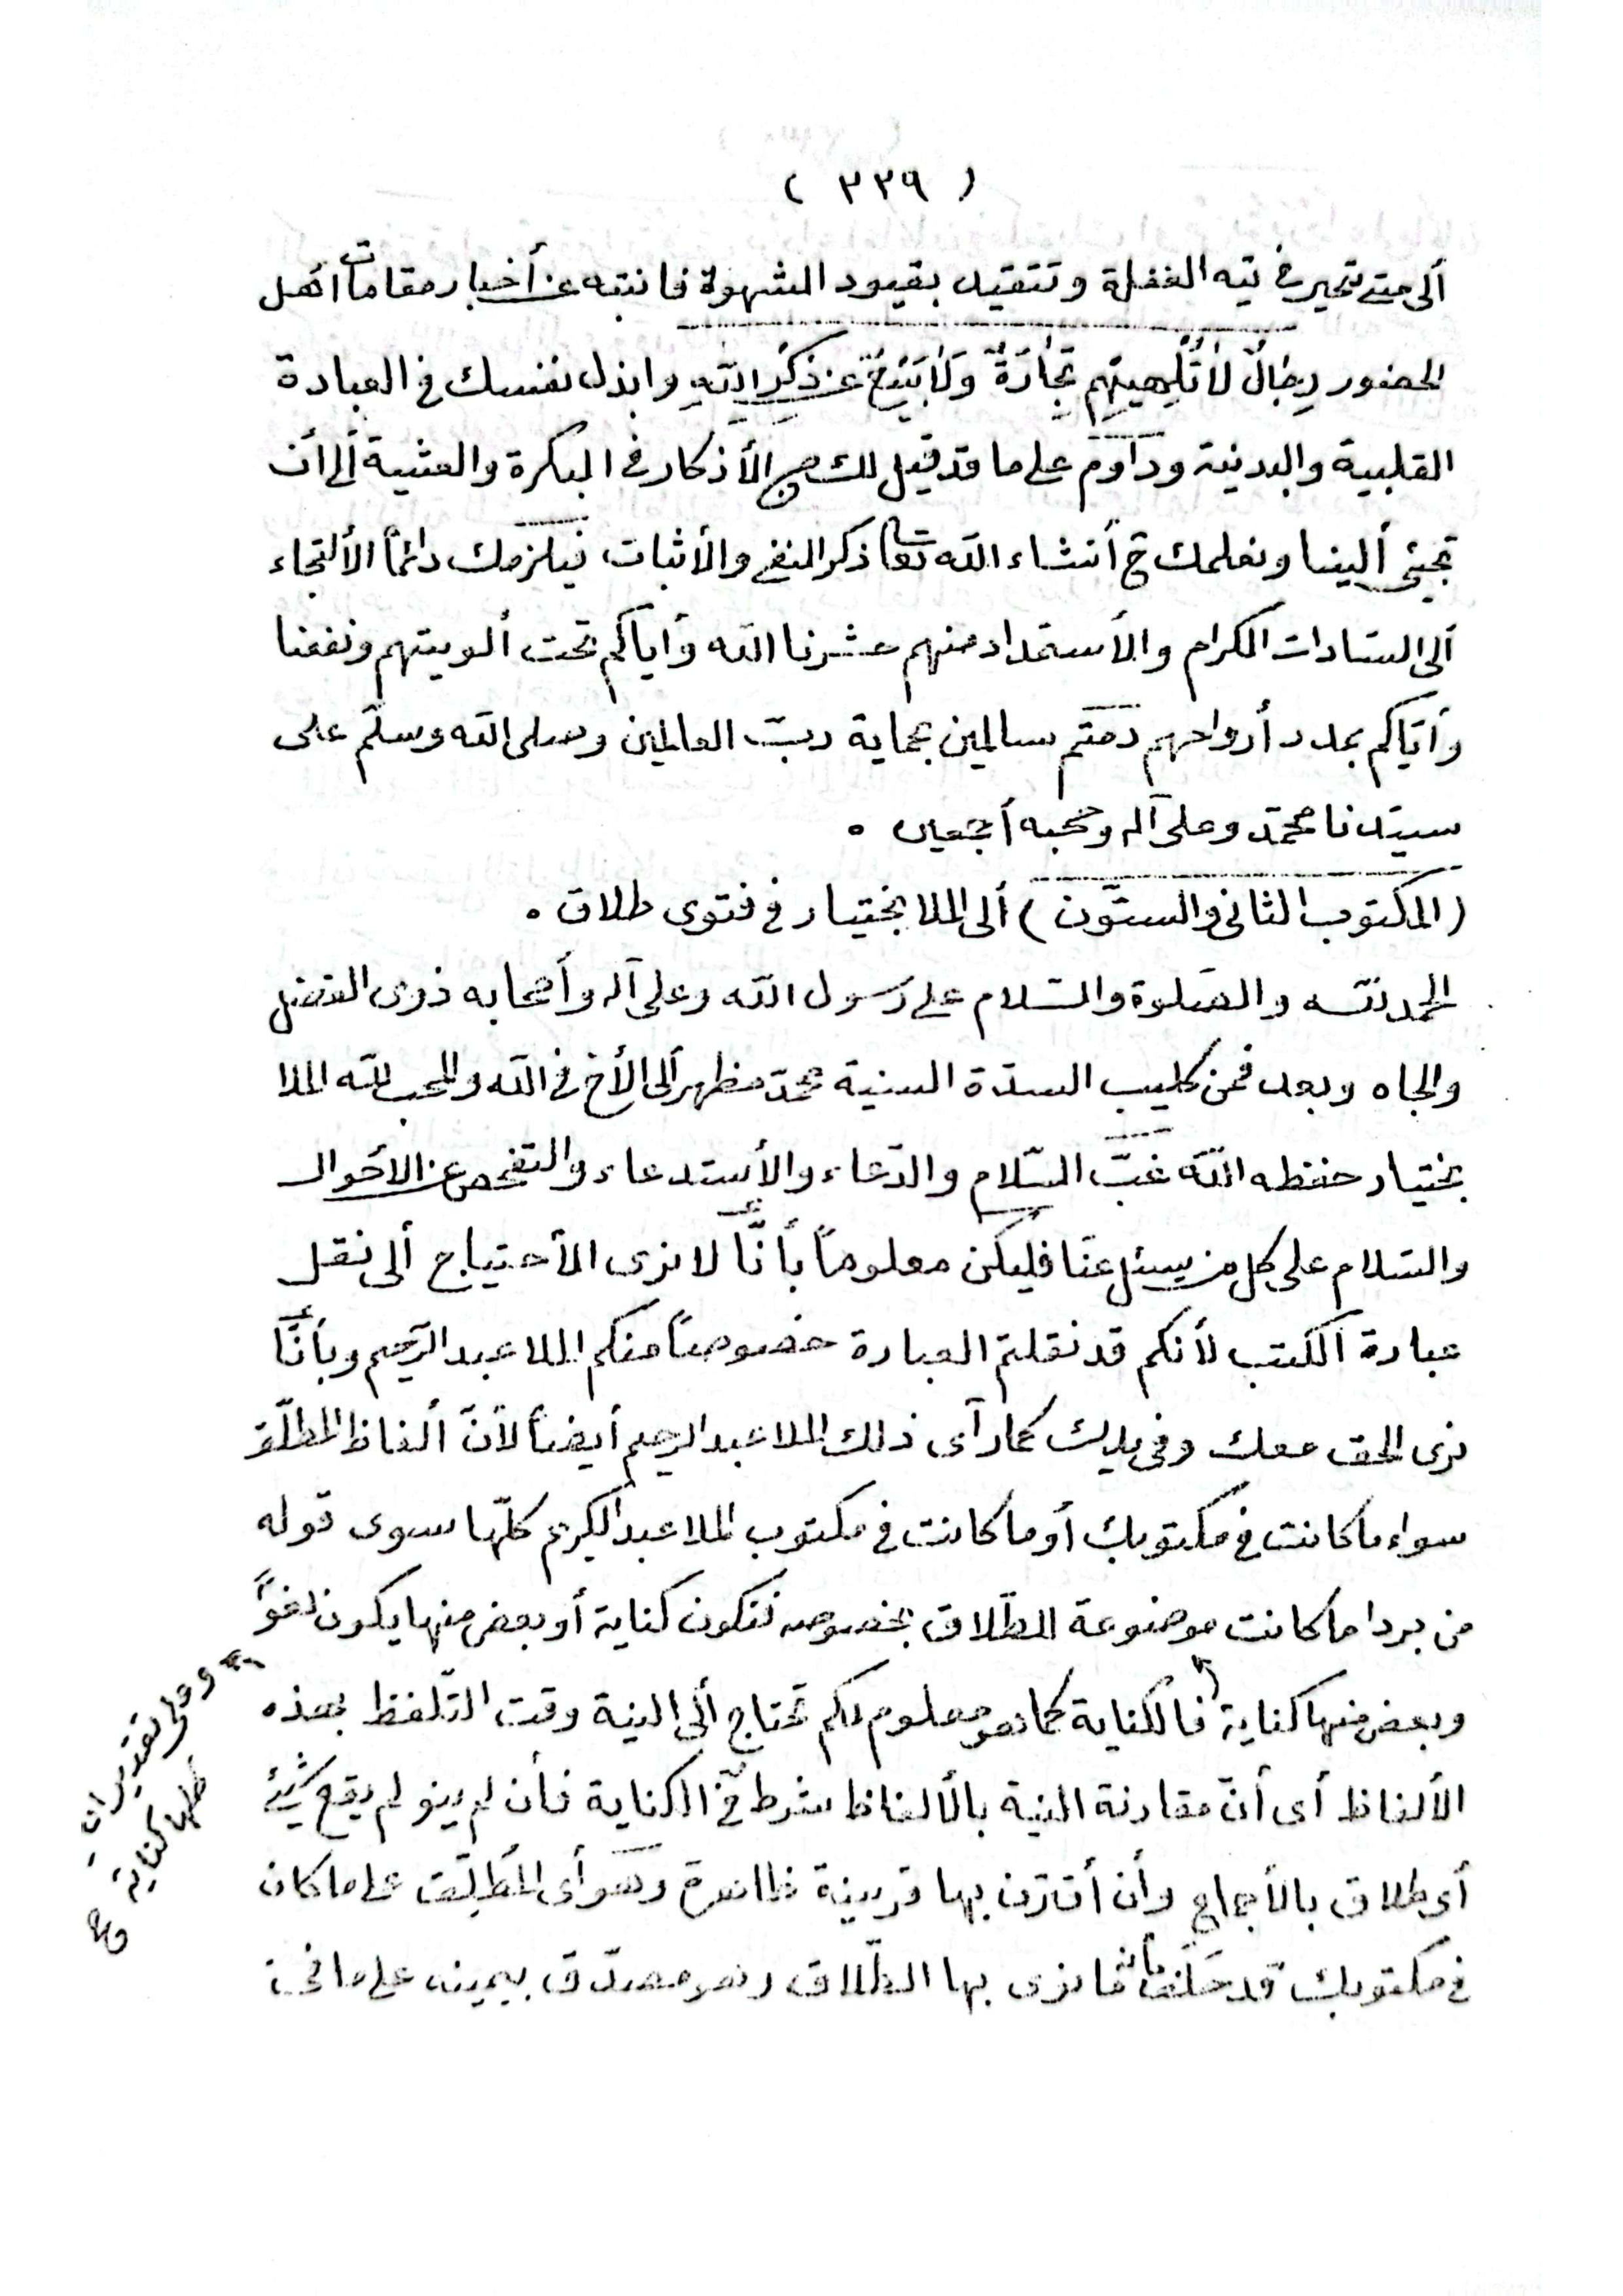 ( ٣٣٩ )
ألى متى تتحير فى تيه الغفلة وتتقيد بقيود الشهوة فانتبه عن أخبار مقامات اهل
الحضور رِجَالٌ لَا تُلْهِيهِمْ تِجَارَةٌ وَلَا بَيْعٌ عَن ذِكْرِ اللّهِ وابذل نفسك فى العبادة
القلبية والبدنية وداوم على ما قد قيل لك من الأذكار فى البكرة والعشية ألى أن
تجيئ ألينا ونعلمك ح أنشاء الله تعا ذكر النفى والأثبات فيلزمك دائماً الألتجاء
ألى السّادات الكرام والأستمداد منهم حشرنا الله وأياكم تحت ألويتهم ونفعنا
وأيّاكم بمدد أرواحهم دمتم سالمين بحماية ربّ العالمين وصلى الله وسلّم على
سيّدنا محمّد وعلى آله وصحبه أجمعين ٠
(المكتوب الثانى والستّون) ألى الملا بختيار فى فتوى طلاق ٠
الحمد لله والصّلوة والسّلام على رسول الله وعلى آله وأصحابه ذوى الفضل
والجاه وبعد فمن كليب السدّة السنية محمّد مظهر ألى الأخ فى الله والمحب لله الملا
بختيار حفظه الله غبّ السّلام والدّعاء والأستدعاء والتفحص عن الأحوال
والسّلام على كل من يسئل عنّا فليكن معلوماً بأنّا لا نرى الأحتياج ألى نقل
عبارة الكتب لأنكم قد نقلتم العبارة خصوصاً منكم الملا عبد الرّحيم وبأنّا
نرى الحق معك وفى يدك كما رآى ذلك الملا عبد الرحيم أيضاً لأنّ ألفاظ المطلّق
سواء ما كانت فى مكتوبك أو ما كانت فى مكتوب الملا عبد الكريم كلّها سوى قوله
من بردا ما كانت موضوعة للطّلاق بخصوصه فتكون كناية أو بعض منها يكون لغوًا
وبعض منها كناية فالكناية كما هو معلوم لكم تحتاج ألى النية وقت التّلفظ بهذه
الألفاظ أى أنّ مقارنة النية بالألفاظ شرط فى الكناية فأن لم ينو لم يقع شيئ
أى طلاق بالأجماع وأن أقترن بها قرينة ظاهرة وهو أى المُطلِّق على ما كان
فى مكتوبك قد حَلَفَ بأنه ما نوى بها الطّلاق وهو مصدّق بيمينه على ما فى
وعلى تقدير ان
كلها كناية